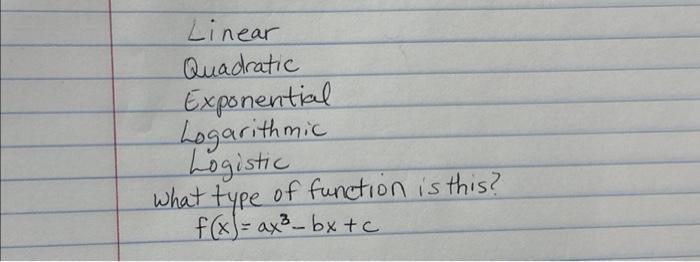 Linear
Quadratic
Exponential
Logarithmic
Logistic
What type of function is this?
f(x) = ax³ - bx + c